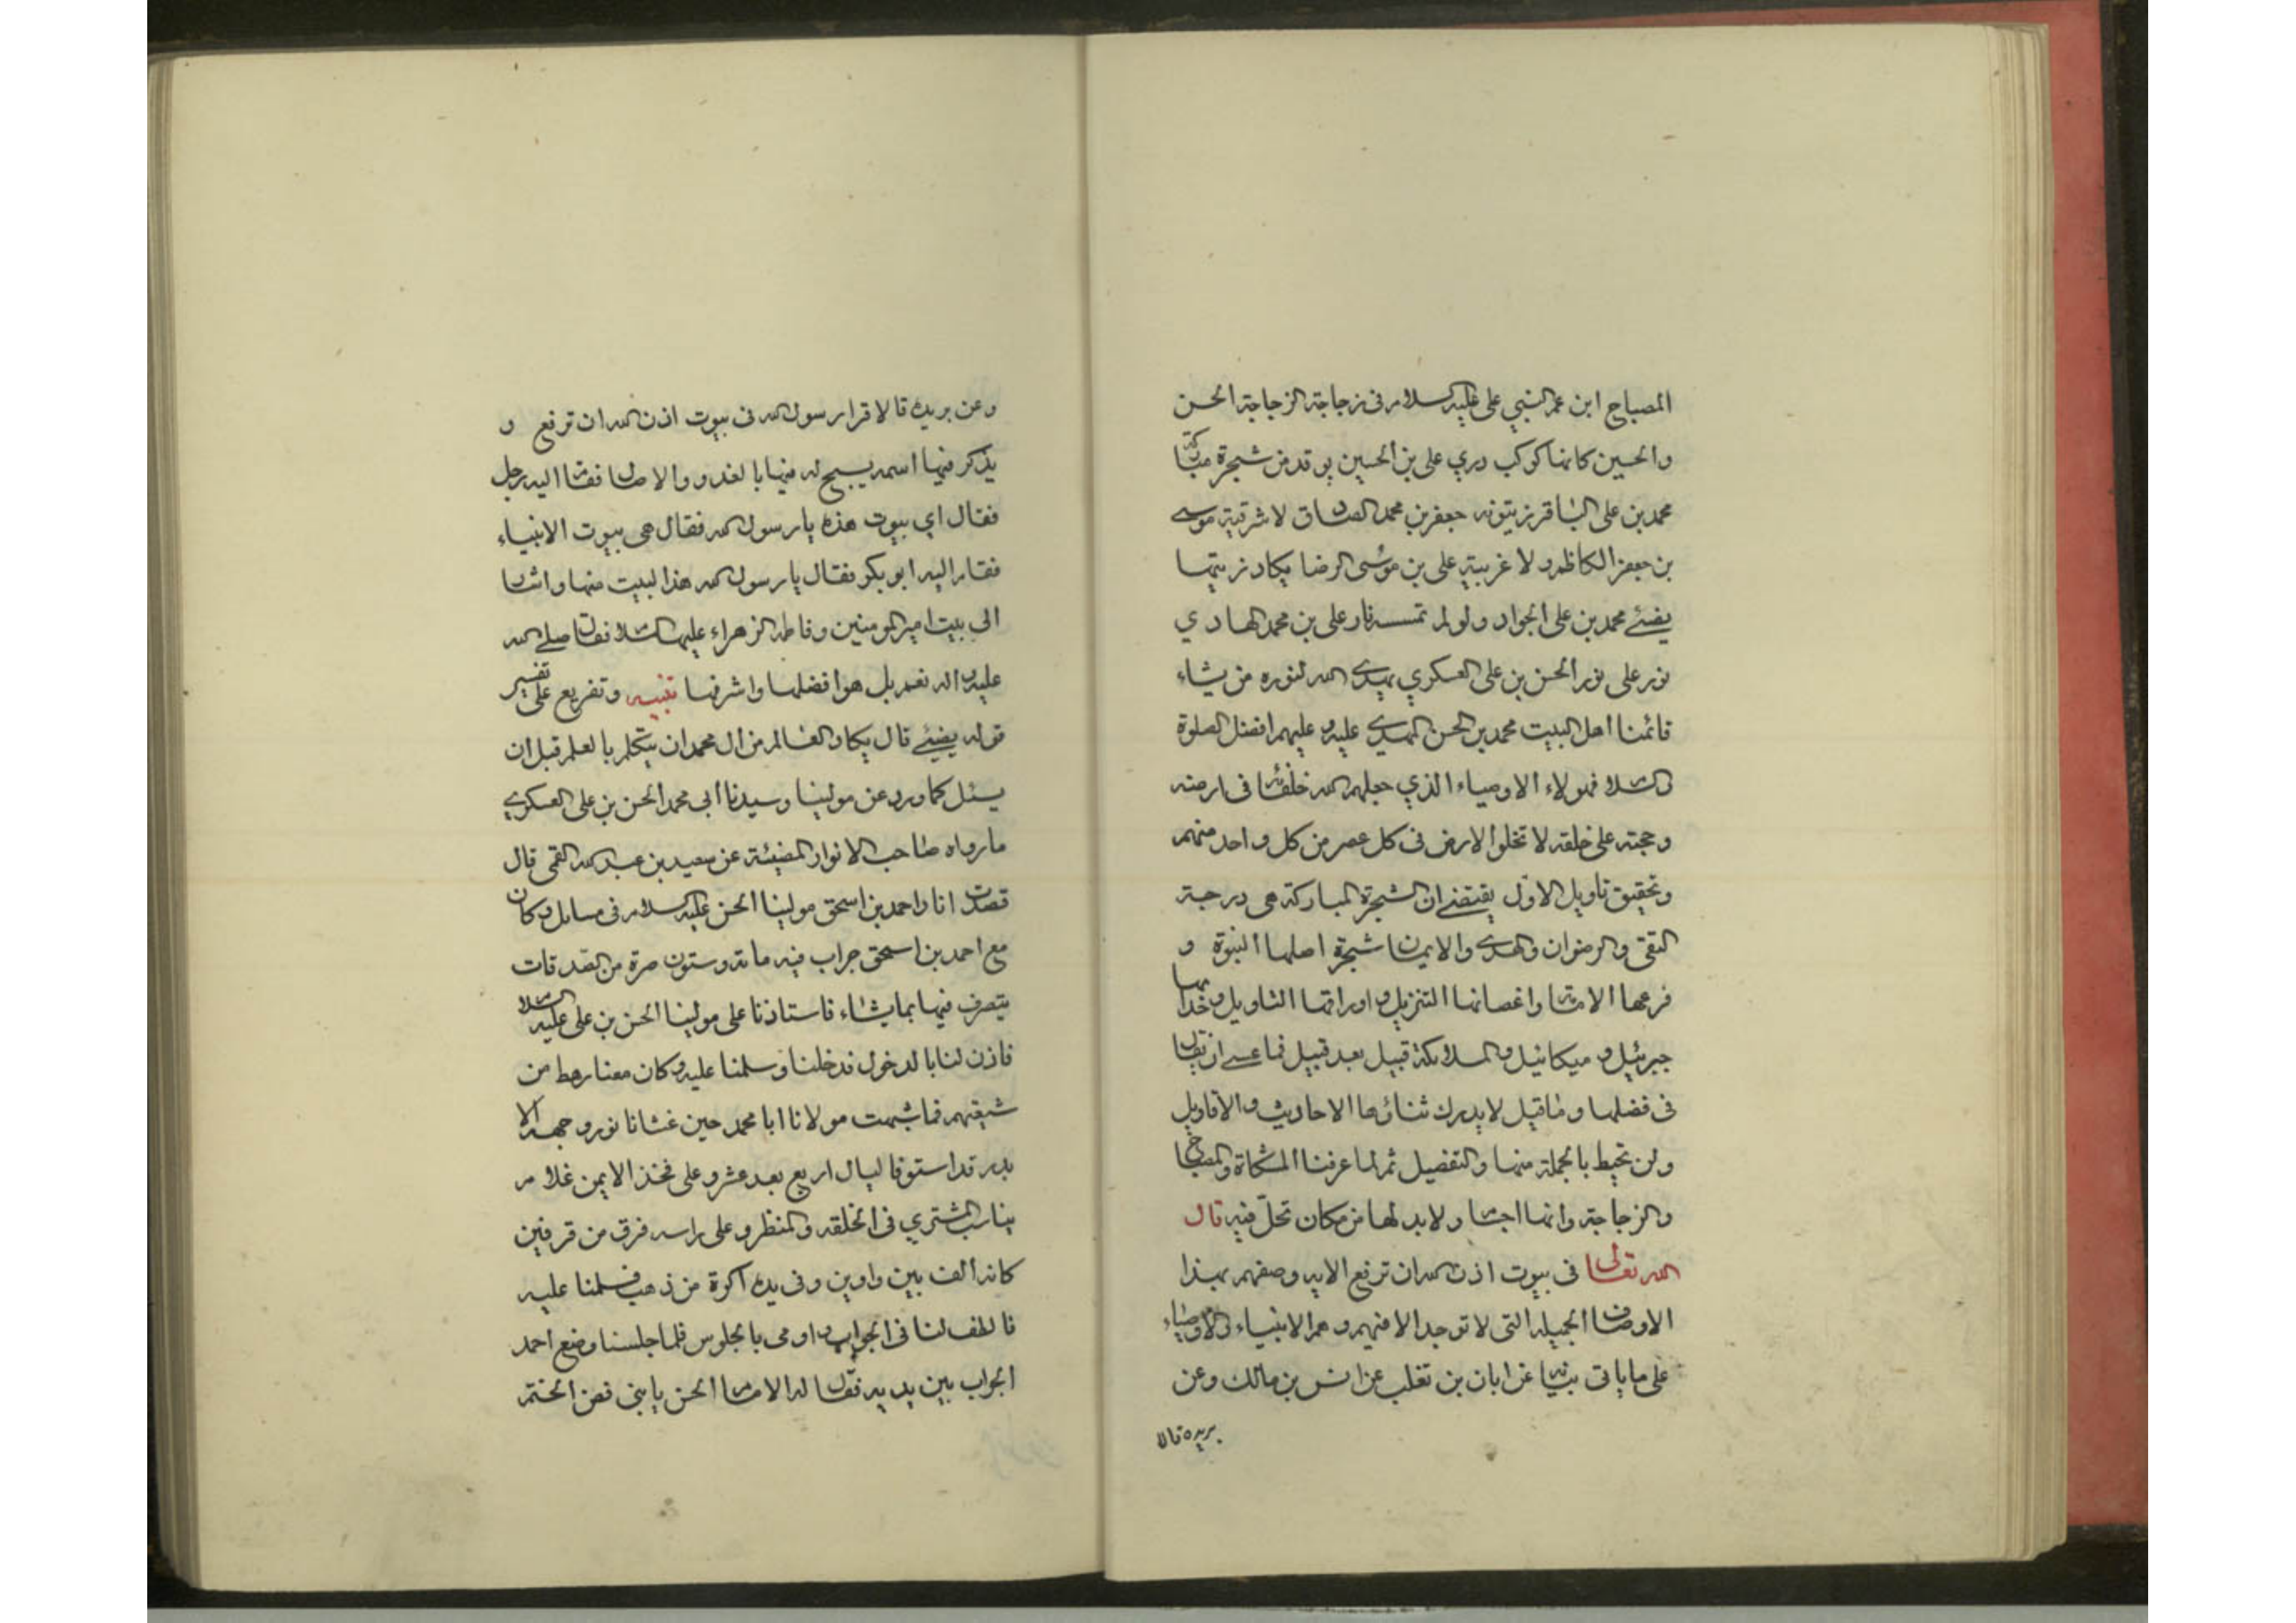 المصباح ابن عم النبي علي عليه السلام في زجاجة الزجاجة الحسن
والحسين كانها كوكب دري علي بن الحسين يوقد من شجرة مباركة
محمد بن علي الباقر زيتونه جعفر بن محمد الصادق لا شرقية موسى
بن جعفر الكاظم ولا غربية علي بن موسى الرضا يكاد زيتها
يضئ محمد بن علي الجواد ولو لم تمسسه نار علي بن محمد الهادي
نور على نور الحسن بن علي العسكري يهدى الله لنوره من يشاء
قائمنا اهل البيت محمد بن الحسن المهدى عليه و عليهم افضل الصلوة
والسلام فهولاء الاوصياء الذي جعلهم الله خلفائه في ارضه
و حجته على خلقه لا تخلو الارض في كل عصر من كل واحد منهم
وتحقيق تاويل الاول يقتضى ان الشجرة المباركة هي درجة
التقى والرضوان والهدى والايمان شجرة اصلها النبوة و
فرعها الامامة واغصانها التنزيل و اوراقها التاويل و خدامها
جبرئيل و ميكائيل والملائكة قبيل بعد قبيل فما عسى ان يقال
في فضلها وما قيل لا يدرك ثنائها الاحاديث والاقاويل
ولن تحيط بالجملة منها والتفصيل ثم لما عرفنا المشكاة والمصباح
والزجاجة وانها اجسام ولا بد لها من مكان تحل فيه قال
الله تعالى في بيوت اذن الله ان ترفع الايه وصفهم بهذا
الاوصاف الجميله التي لا توجد الا فيهم وهم الانبياء والاوصياء
على ما ياتي بيانه عن ابان بن تغلب عن انس بن مالك وعن
بريده قالا
وعن بريده قالا قرا رسول الله في بيوت اذن الله ان ترفع و
يذكر فيها اسمه يسبح له فيها بالغدو والاصال فقام اليه رجل
فقال اي بيوت هذه يا رسول الله فقال هي بيوت الانبياء
فقام اليه ابو بكر فقال يا رسول الله هذا البيت منها واشار
الى بيت امير المومنين وفاطمه الزهراء عليهما السلام فقال صلى الله
عليه واله نعم بل هو افضلها واشرفها تنبيه وتفريع على تفسير
قوله يضيئ قال يكاد العالم من ال محمد ان يتكلم بالعلم قبل ان
يسئل كما ورد عن مولينا وسيدنا ابي محمد الحسن بن علي العسكري
ما رواه صاحب الانوار المضيئة عن سعيد بن عبد الله القمى قال
قصدت انا واحمد بن اسحق مولينا الحسن عليه السلام في مسايل وكان
مع احمد بن اسحق جراب فيه مائة وستون صرة من الصدقات
يتصرف فيها بما يشاء فاستاذنا على مولينا الحسن بن علي عليه السلام
فاذن لنا بالدخول فدخلنا وسلمنا عليه وكان معنا رهط من
شيعتهم فما شبهت مولانا ابا محمد حين غشانا نور وجهه الا
بدر قد استوفا ليال اربع بعد عشر وعلى فخذ الايمن غلام
يناسب المشتري في الخلقه والمنظر وعلى راسه فرق من قرفين
كانه الف بين واوين وفي يده اكرة من ذهب فسلمنا عليه
فالطف لنا في الجواب و اومى بالجلوس فلما جلسنا وضع احمد
الجراب بين يديه فقال له الامام الحسن يا بني فض الختم